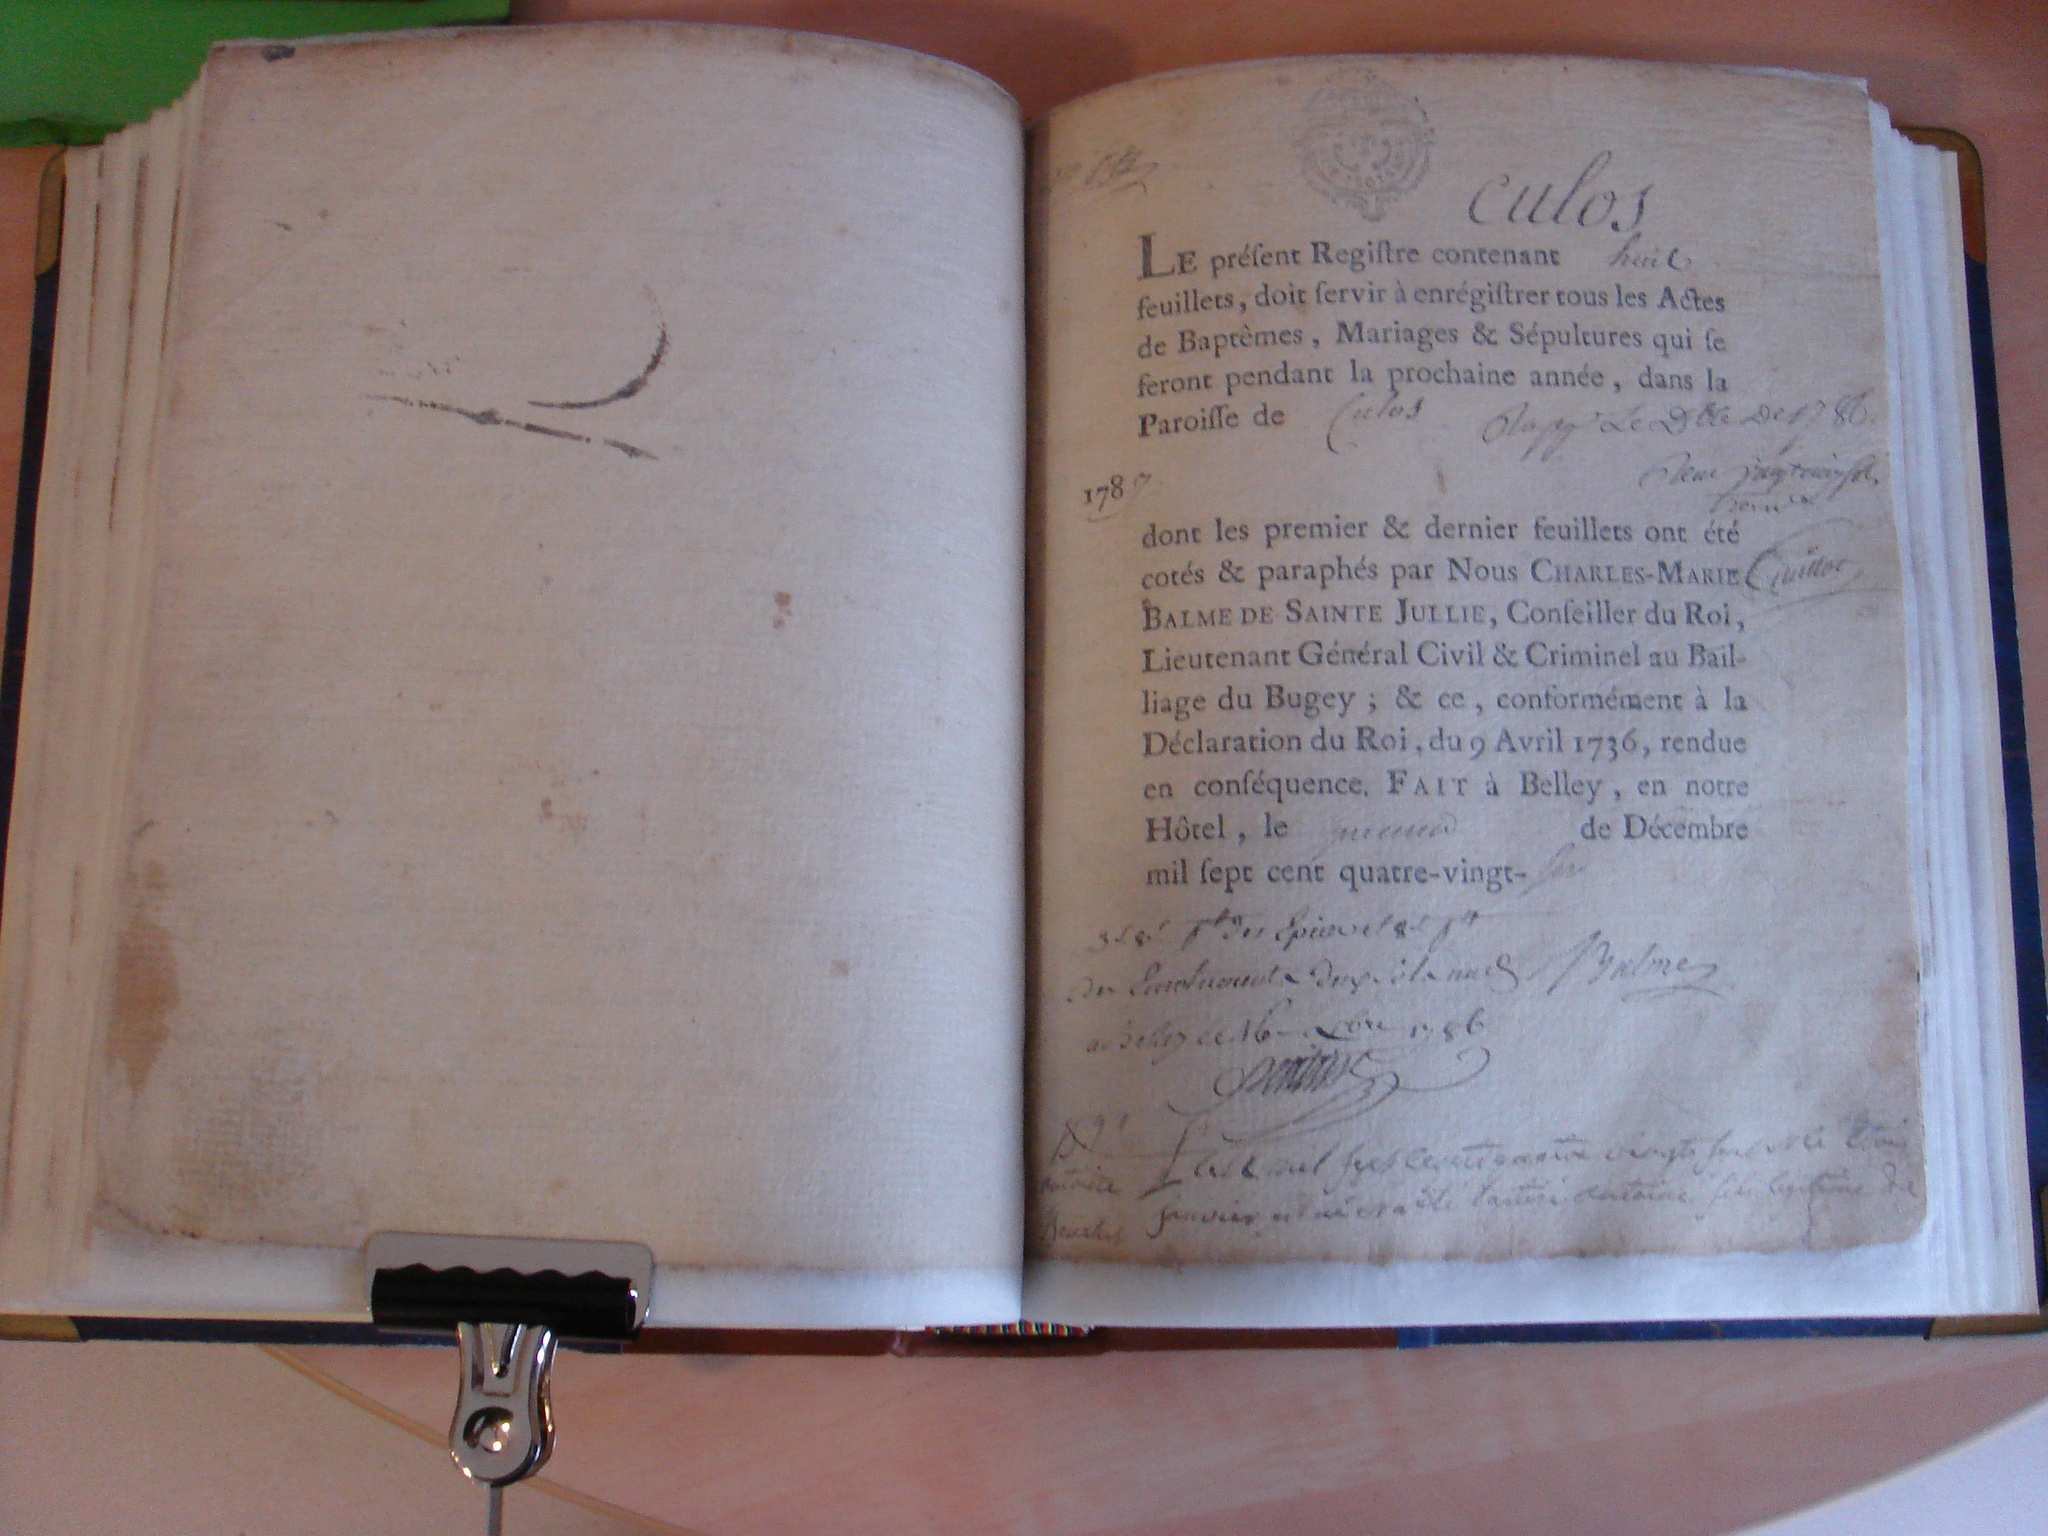 culos
LE préſent Regiſtre contenant huit
feuillets, doit ſervir à enrégiſtrer tous les Actes
de Baptêmes, Mariages & Sépultures qui ſe
feront pendant la prochaine année, dans la
Paroiſſe de Culos Le De 1786
1787
dont les premier & dernier feuillets ont été
cotés & paraphés par Nous CHARLES-MARIE
BALME DE SAINTE JULLIE, Conſeiller du Roi,
Lieutenant Général Civil & Criminel au Bail-
liage du Bugey ; & ce, conformément à la
Déclaration du Roi, du 9 Avril 1736, rendue
en conſéquence. FAIT à Belley, en notre
Hôtel, le de Décembre
mil ſept cent quatre-vingt-
Balme
a Belley ce 16 1786
mil sept cent quatre vingts sept le trois
janvier est né et a été Antoine fils légitime de